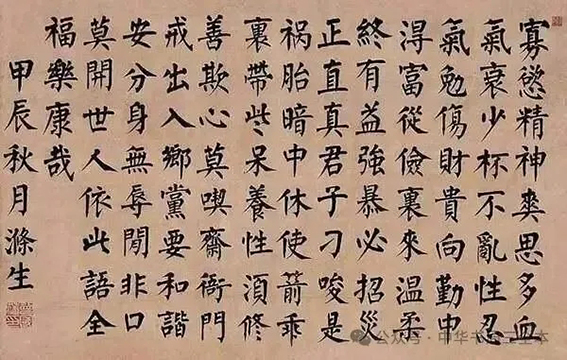 寡慾精神爽思多血
氣衰少杯不亂性忍
氣勉傷財貴向勤中
淂富從儉裏來温柔
終有益強暴必招災
正直真君子刁唆是
祸胎暗中休使箭乖
裏帶些呆養性湏修
善欺心莫喫齋衙門
戒出入鄉黨要和諧
安分身無辱閒非口
莫開世人依此語全
福樂康哉
甲辰秋月滌生
公众号·中华书